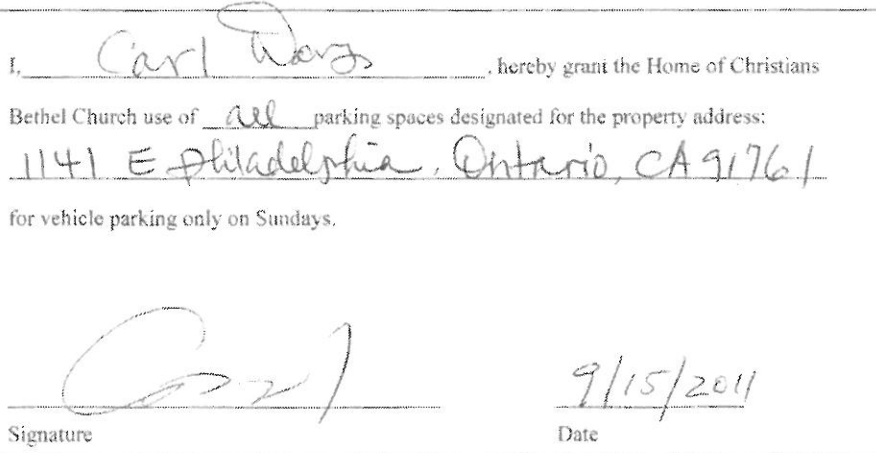 I, Carl , hereby grant the Home of Christians
Bethel Church use of all parking spaces designated for the property address:
1141 E Philadelphia, Ontario, CA 91761
for vehicle parking only on Sundays.
9/15/2011
Signature Date